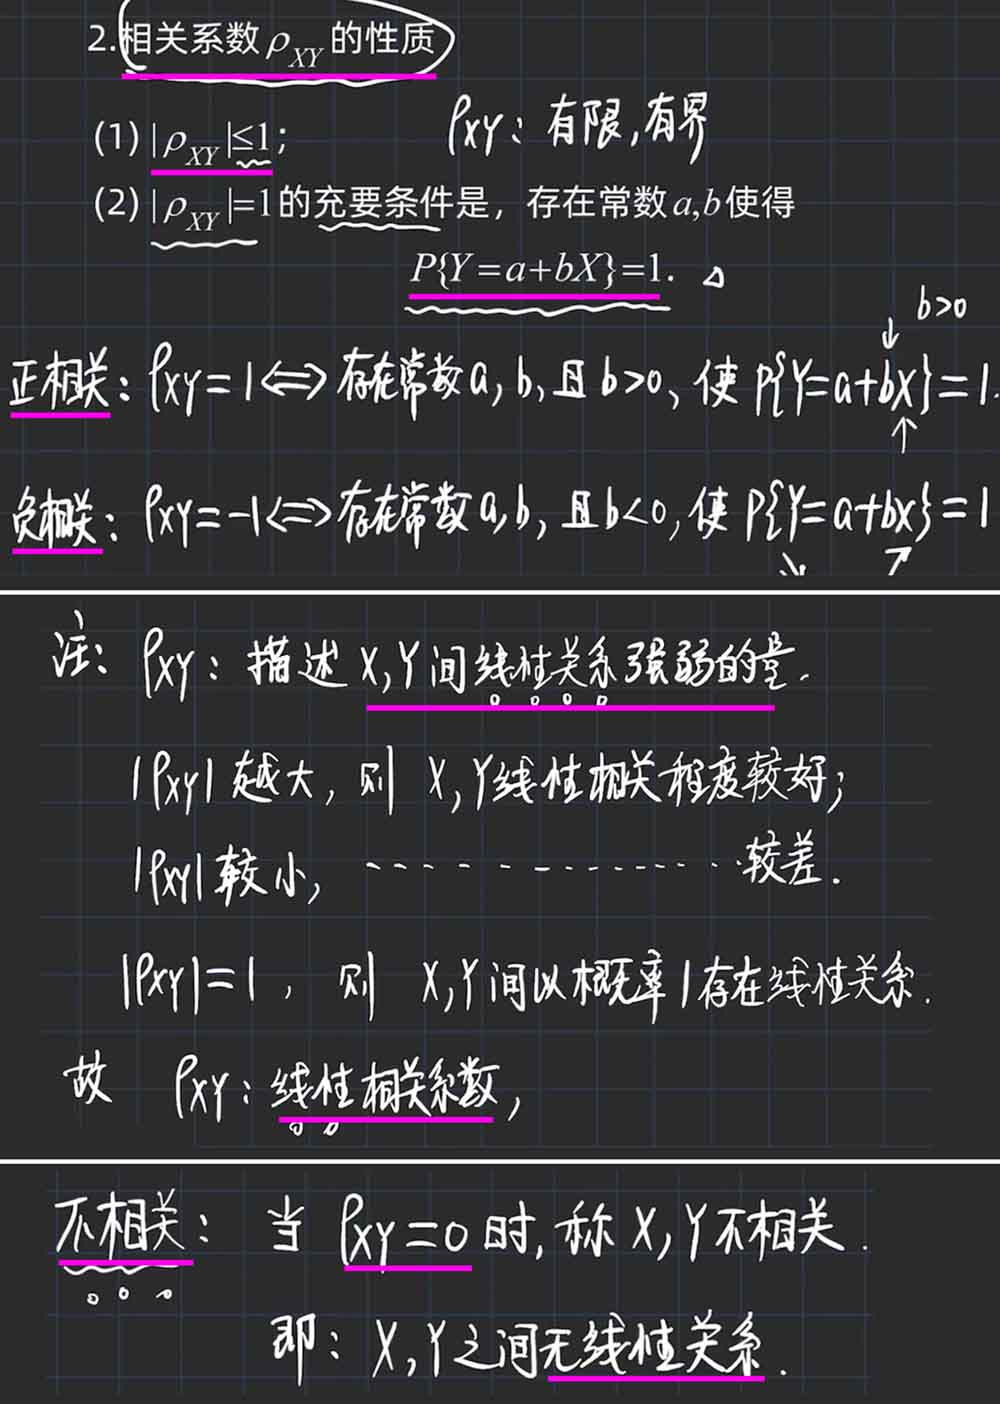 2.相关系数ρXY的性质
(1) |ρXY|≤1;
ρXY: 有限,有界
(2) |ρXY|=1的充要条件是，存在常数a,b使得
P{Y=a+bX}=1. △
b>0
↓
正相关: ρXY=1⇔存在常数a,b,且b>0,使P{Y=a+bX}=1.
↑
负相关: ρXY=-1⇔存在常数a,b,且b<0,使P{Y=a+bX}=1
↘ ↗
注: ρXY: 描述X,Y间线性关系强弱的量.
|ρXY|越大,则X,Y线性相关程度较好;
|ρXY|较小, --------------较差.
|ρXY|=1, 则 X,Y间以概率1存在线性关系.
故 ρXY: 线性相关系数,
不相关: 当ρXY=0时,称X,Y不相关.
即: X,Y之间无线性关系.